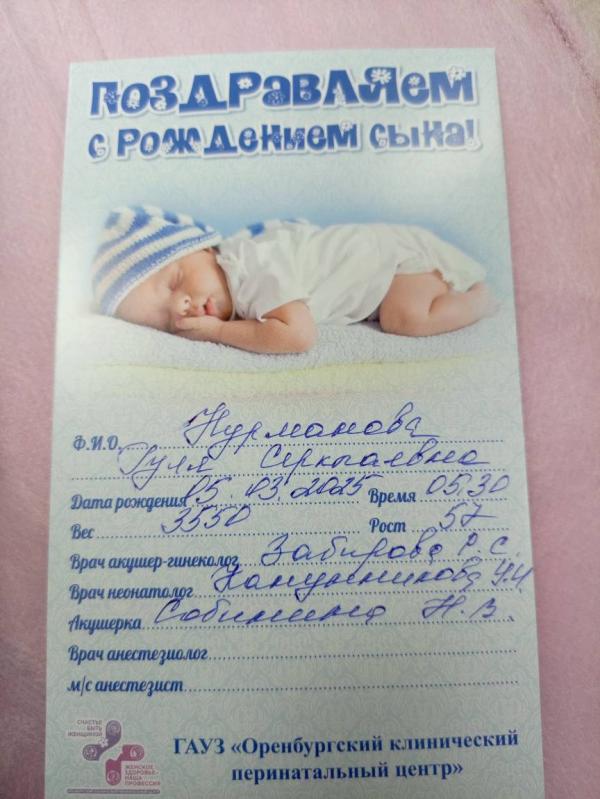 Поздравляем
с рождением сына!
Ф.И.О. Нурманова
Гуля
Дата рождения 05.03.2025 Время 05:30
Вес 3550 Рост 57
Врач акушер-гинеколог Забирова Р.С.
Врач неонатолог
Акушерка Собинина Н.В.
Врач анестезиолог
м/с анестезист
СЧАСТЬЕ
БЫТЬ
ЖЕНЩИНОЙ
ЖЕНСКОЕ
ЗДОРОВЬЕ-
НАША
ПРОФЕССИЯ
ГАУЗ «Оренбургский клинический
перинатальный центр»